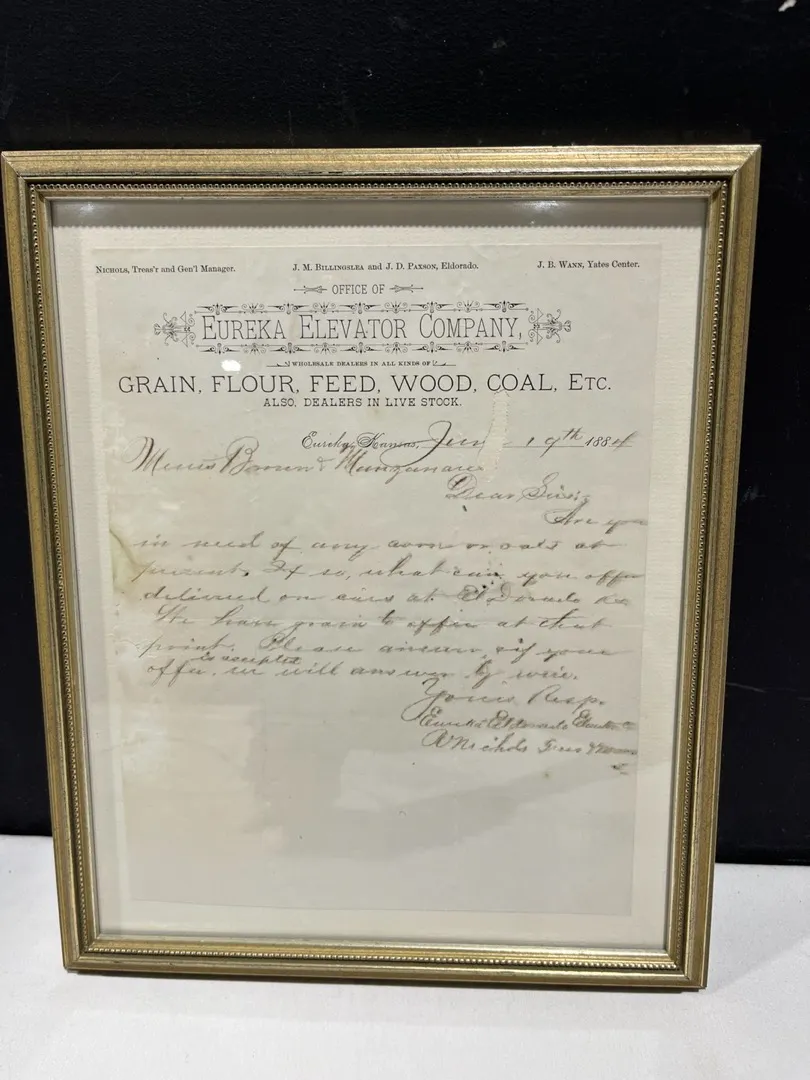 Nichols, Treas'r and Gen'l Manager. J. M. Billingslea and J. D. Paxson, Eldorado. J. B. Wann, Yates Center.
OFFICE OF
EUREKA ELEVATOR COMPANY,
WHOLESALE DEALERS IN ALL KINDS OF
GRAIN, FLOUR, FEED, WOOD, COAL, ETC.
ALSO, DEALERS IN LIVE STOCK.
Eureka, Kansas, June 19th 1884
Messrs Brown & Manzanares
Dear Sirs;
Are you
in need of any corn or oats at
present. If so, what can you offer
delivered on cars at El Dorado Ks
We have grain to offer at that
point. Please answer, if your
is accepted
offer, we will answer by wire.
Yours Resp.
Eureka Eldorado Elevator Co
Nichols Treas &